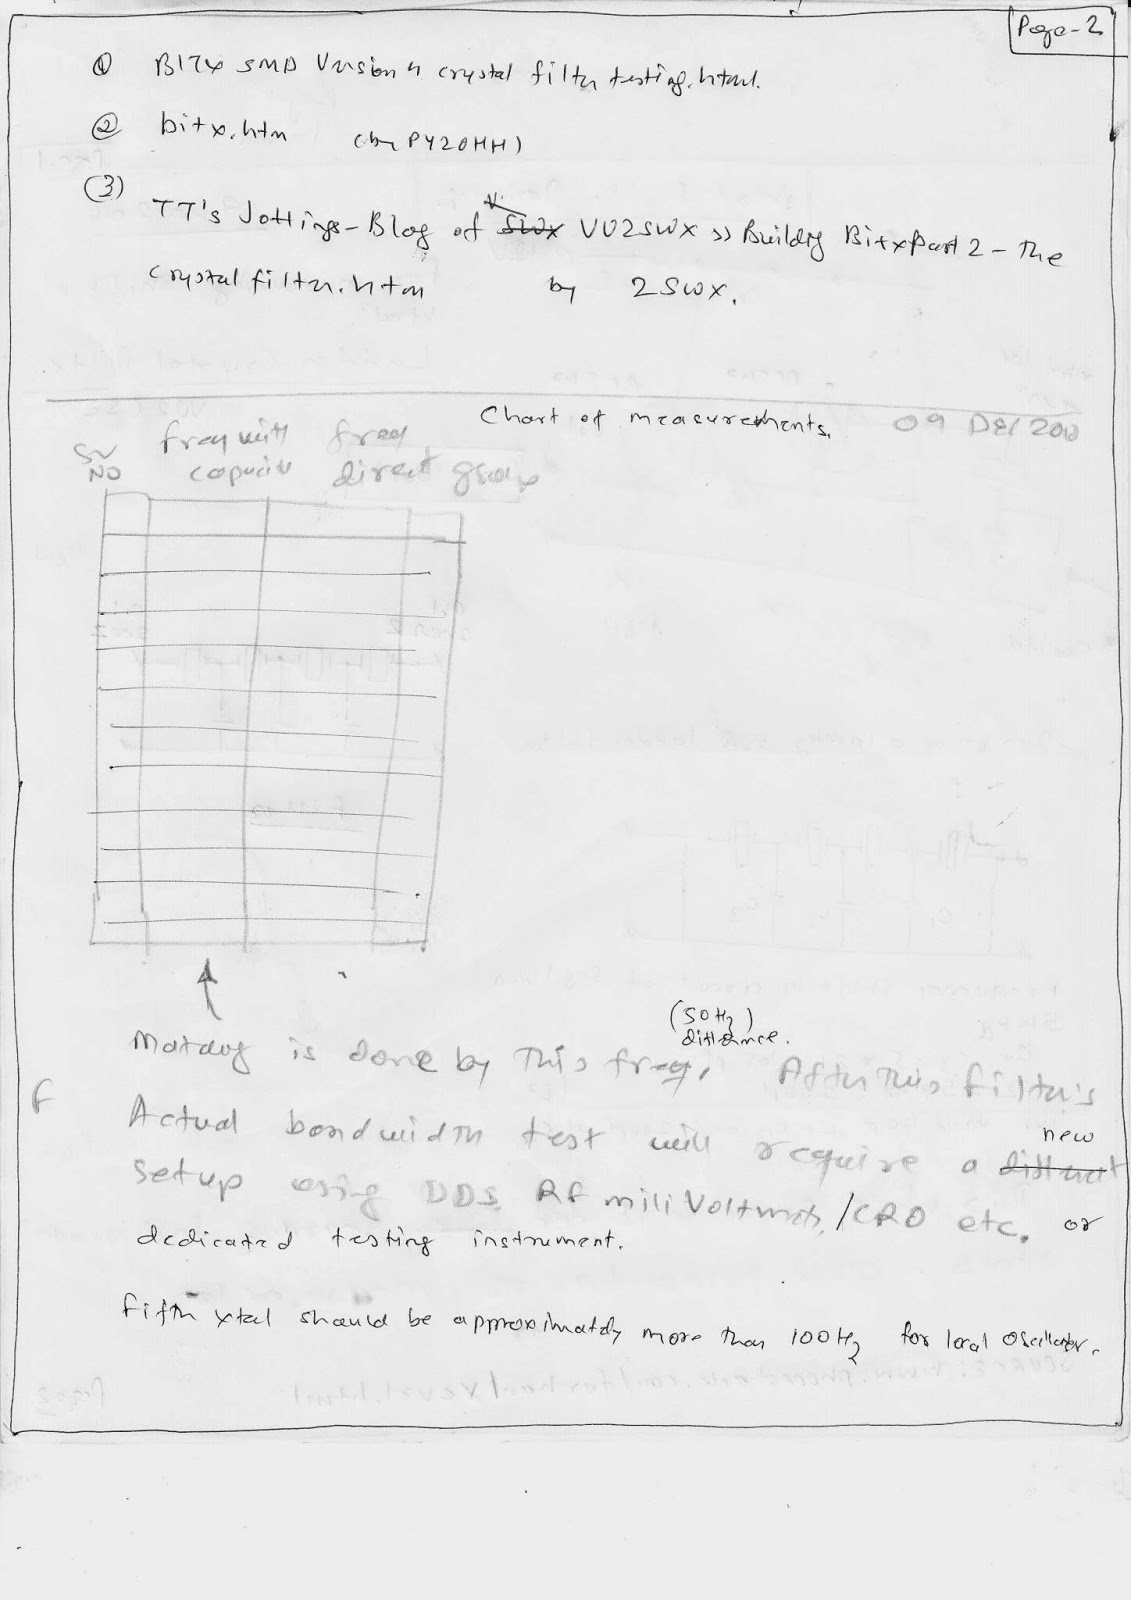 Page-2
① BITX SMD Version 4 crystal filter testing.html.
② bitx.htm (by PY2OHH)
(3) TT's Jottings-Blog of VU2SWX » Building Bitx Part 2 - The
crystal filter.htm by 2SWX.
Chart of measurements. 09 DEC
Sr NO freq with capacitor freq direct group
(50Hz) difference.
Matching is done by This freq. After This filter's
Actual bandwidth test will require a new
setup using DDS, RF mili Voltmeter/CRO etc. or
dedicated testing instrument.
Fifth xtal should be approximately more than 100Hz for local oscillator.